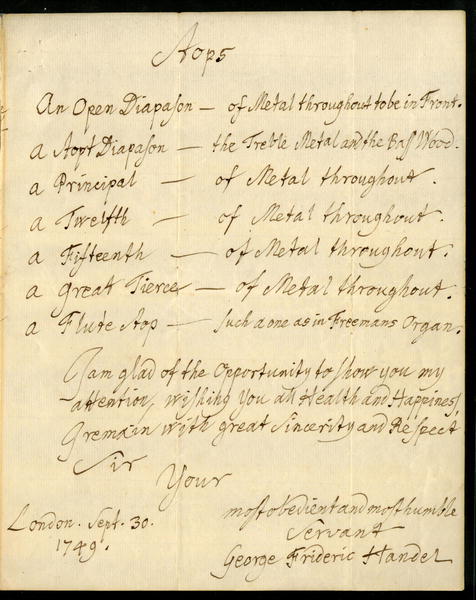 Stops
An Open Diapason — of Metal throughout to be in Front.
a Stopt Diapason — the Treble Metal and the Bass Wood.
a Principal — of Metal throughout.
a Twelfth — of Metal throughout.
a Fifteenth — of Metal throughout.
a Great Tierce — of Metal throughout.
a Flute Stop — such a one as in Freemans Organ.
I am glad of the Opportunity to show you my
attention, wishing you all Health and Happiness,
I remain with great Sincerity and Respect
Sir
Your
most obedient and most humble
Servant
George Frideric Handel
London. Sept. 30.
1749.